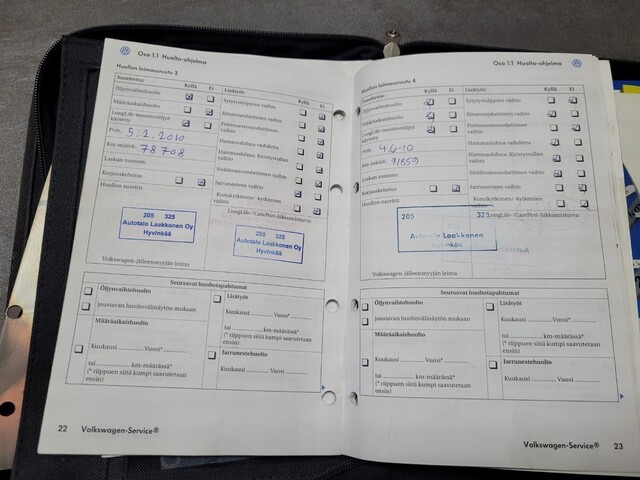 Osa 1.1 Huolto-ohjelma
Huollon leimausruutu 3
Suoritettu: Kyllä Ei
Öljynvaihtohuolto
Määräaikaishuolto
LongLife-moottoriöljyä
käytetty
Pvm. 5.2.2010
Km-määrä: 78708
Laskun numero:
Korjauskehotus
Huollon suoritti:
Lisätyöt: Kyllä Ei
Sytytystulppien vaihto
Ilmansuodattimen vaihto
Polttoainesuodattimen
vaihto
Hammashihna vaihdettu
Hammashihnan kiristysrullan
vaihto
Siitepölysuodattimen vaihto
Jarrunesteen vaihto
LongLife-/CarePort-liikkumisturva:
205 325
Autotalo Laakkonen Oy
Hyvinkää
205 325
Autotalo Laakkonen Oy
Hyvinkää
Volkswagen-jälleenmyyjän leima
Seuraavat huoltotapahtumat
Öljynvaihtohuolto
joustavan huoltovälinäytön mukaan
Määräaikaishuolto
Kuukausi Vuosi*
tai km-määrässä*
(* riippuen siitä kumpi saavutetaan
ensin)
Lisätyöt
Kuukausi Vuosi*
tai km-määrässä*
(* riippuen siitä kumpi saavutetaan
ensin)
Jarrunestehuolto
Kuukausi Vuosi
22 Volkswagen-Service®
Osa 1.1 Huolto-ohjelma
Huollon leimausruutu 4
Suoritettu: Kyllä Ei
Öljynvaihtohuolto
Määräaikaishuolto
LongLife-moottoriöljyä
käytetty
Pvm. 4 6-10
Km-määrä: 91859
Laskun numero:
Korjauskehotus
Huollon suoritti:
Lisätyöt: Kyllä Ei
Sytytystulppien vaihto
Ilmansuodattimen vaihto
Polttoainesuodattimen
vaihto
Hammashihna vaihdettu
Hammashihnan kiristysrullan
vaihto
Jarrunesteen vaihto
LongLife-/CarePort-liikkumisturva:
205 325
Autotalo Laakkonen
Volkswagen-jälleenmyyjän leima
Seuraavat huoltotapahtumat
Öljynvaihtohuolto
joustavan huoltovälinäytön mukaan
Määräaikaishuolto
Kuukausi Vuosi*
tai km-määrässä*
(* riippuen siitä kumpi saavutetaan
ensin)
Lisätyöt
Kuukausi Vuosi*
tai km-määrässä*
(* riippuen siitä kumpi saavutetaan
ensin)
Jarrunestehuolto
Kuukausi Vuosi
Volkswagen-Service® 23